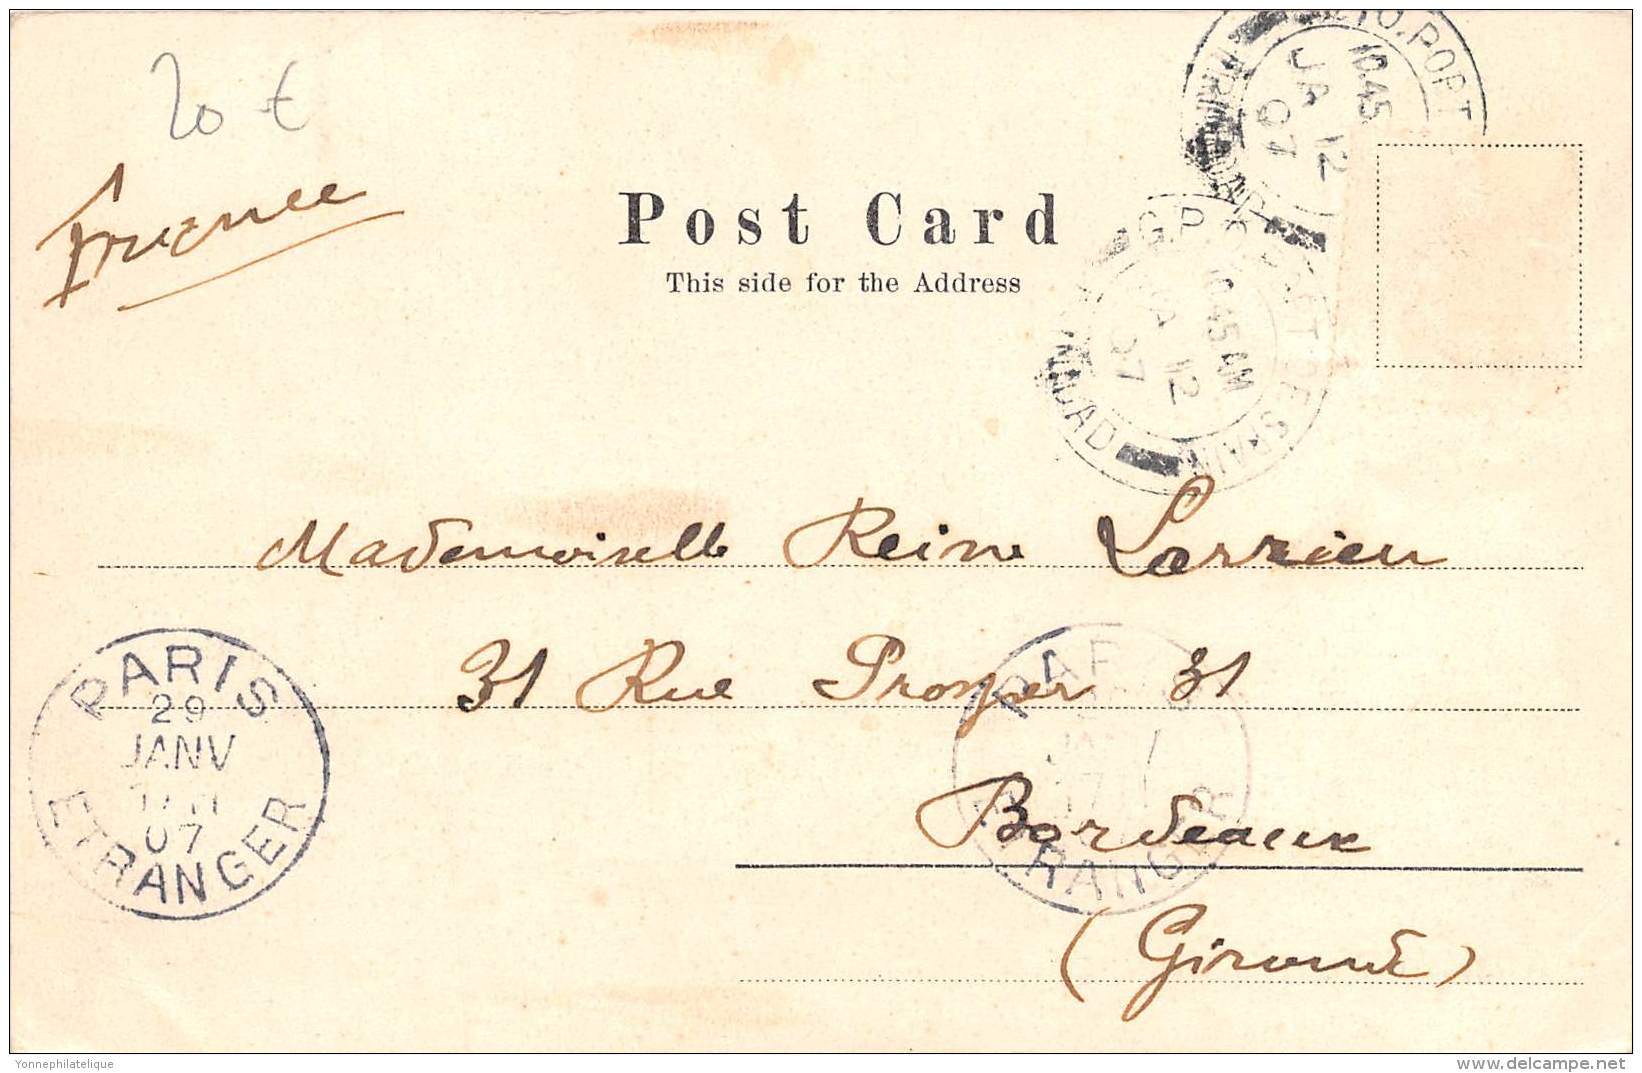 20 €
France
Post Card
This side for the Address
G.P.O. PORT
10.45
JA 12
07
G.P.O. PORT OF SPAIN
10.45 AM
JA 12
07
TRINIDAD
Mademoiselle Reine Larrieu
31 Rue Prosper 31
Bordeaux
(Gironde)
PARIS
29
JANV
07
ETRANGER
PARIS
ETRANGER
Yonnephilatelique
delcampe.net